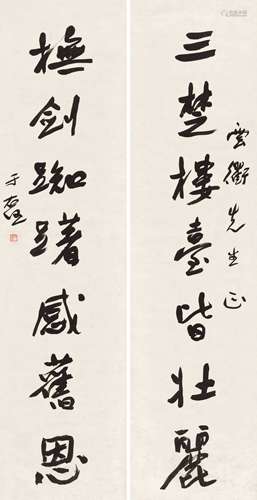 雲衢先生正
三楚樓臺皆壯麗
撫劍踟躇感舊恩
于右任